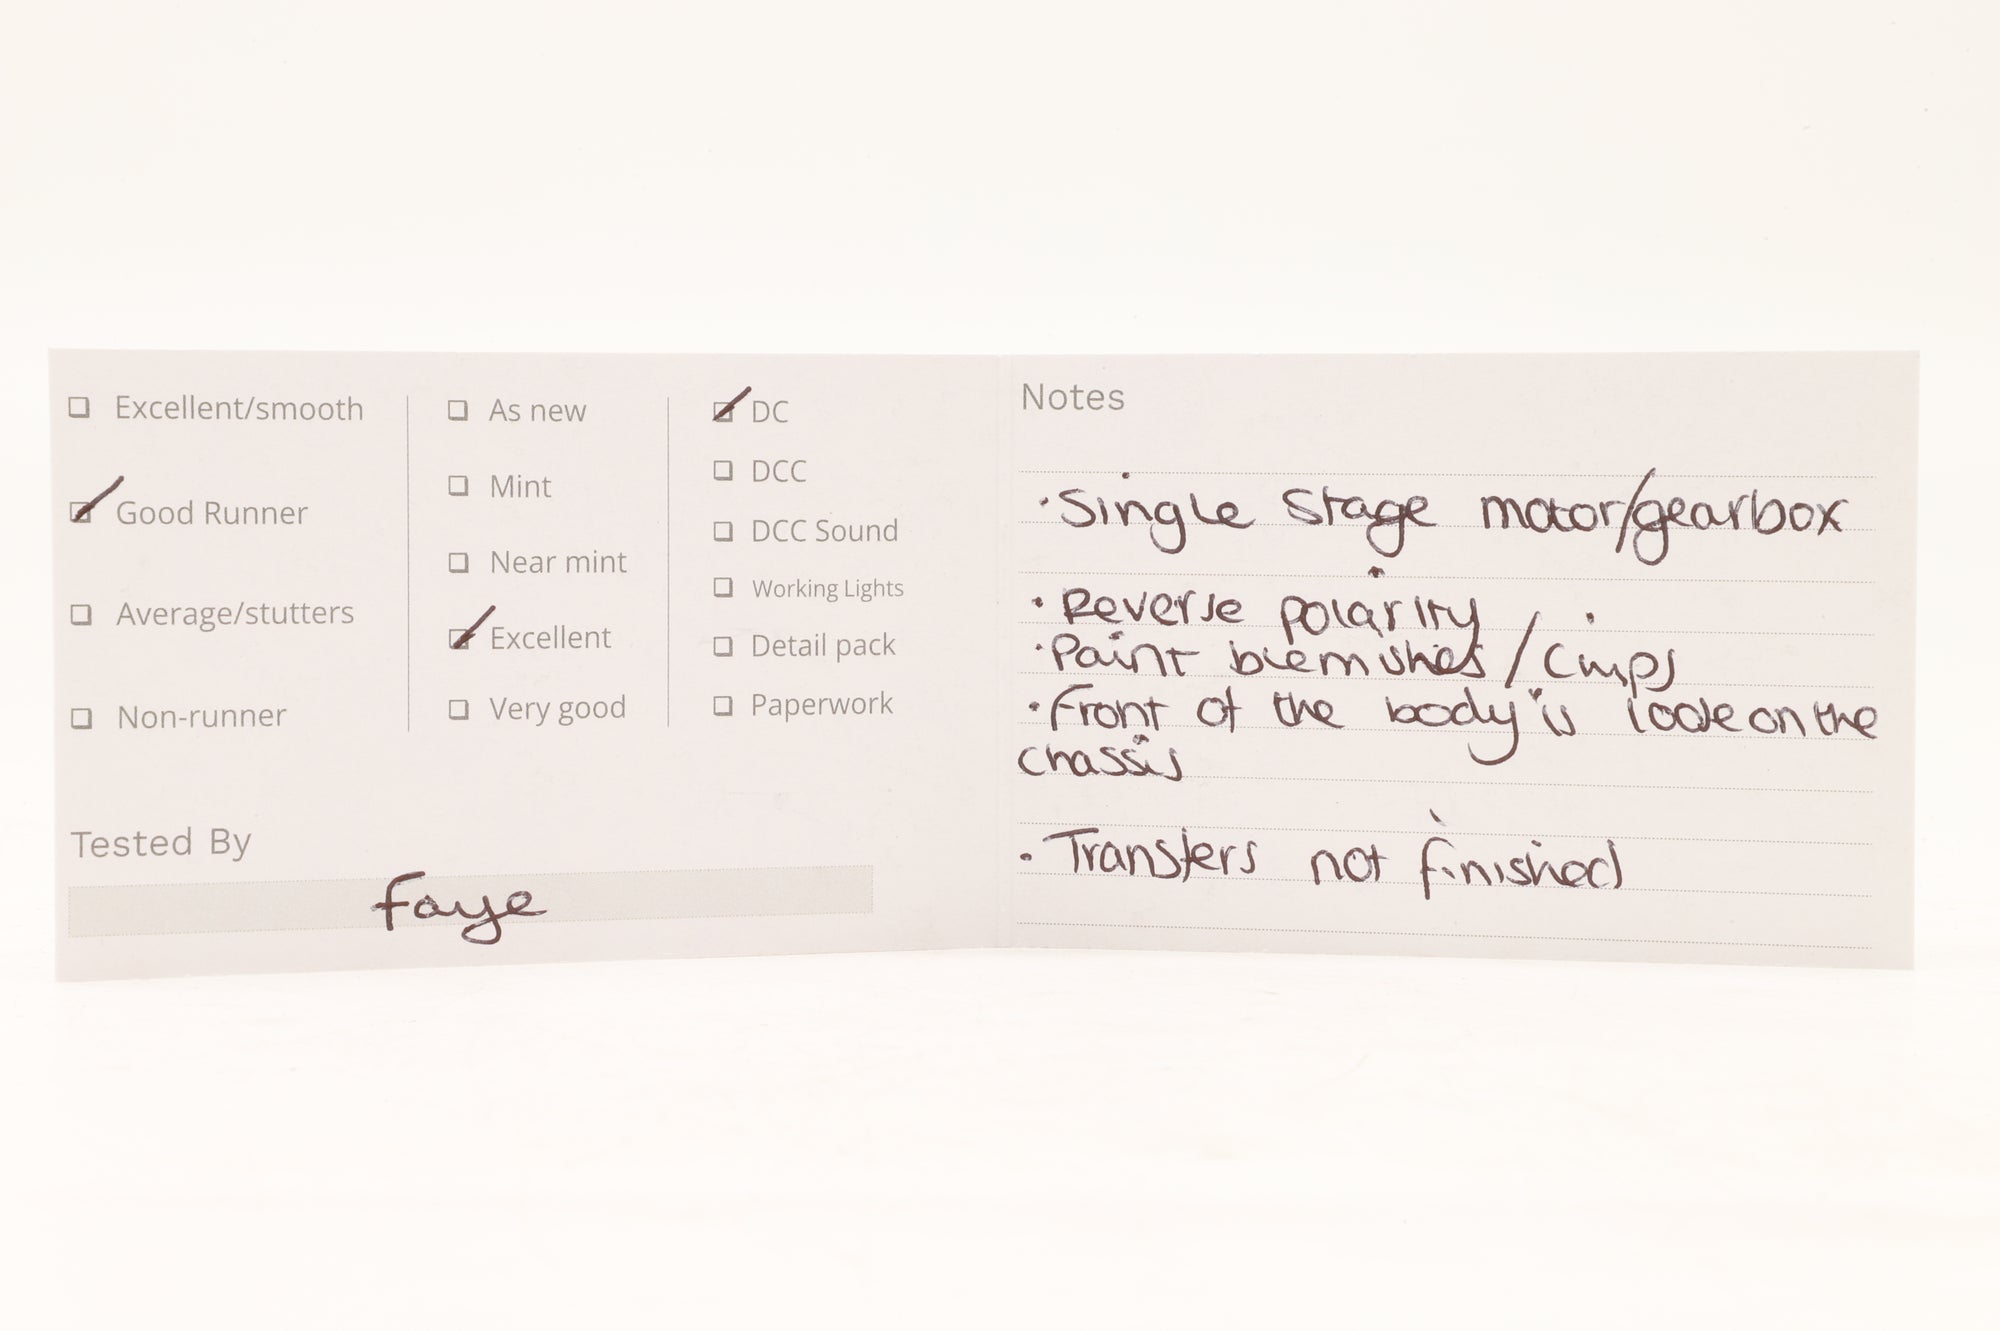 Excellent/smooth
Good Runner
Average/stutters
Non-runner
As new
Mint
Near mint
Excellent
Very good
DC
DCC
DCC Sound
Working Lights
Detail pack
Paperwork
Tested By
Faye
Notes
• Single Stage motor/gearbox
• Reverse polarity
• Paint blemishes / Chips
• Front of the body is loose on the
chassis
• Transfers not finished